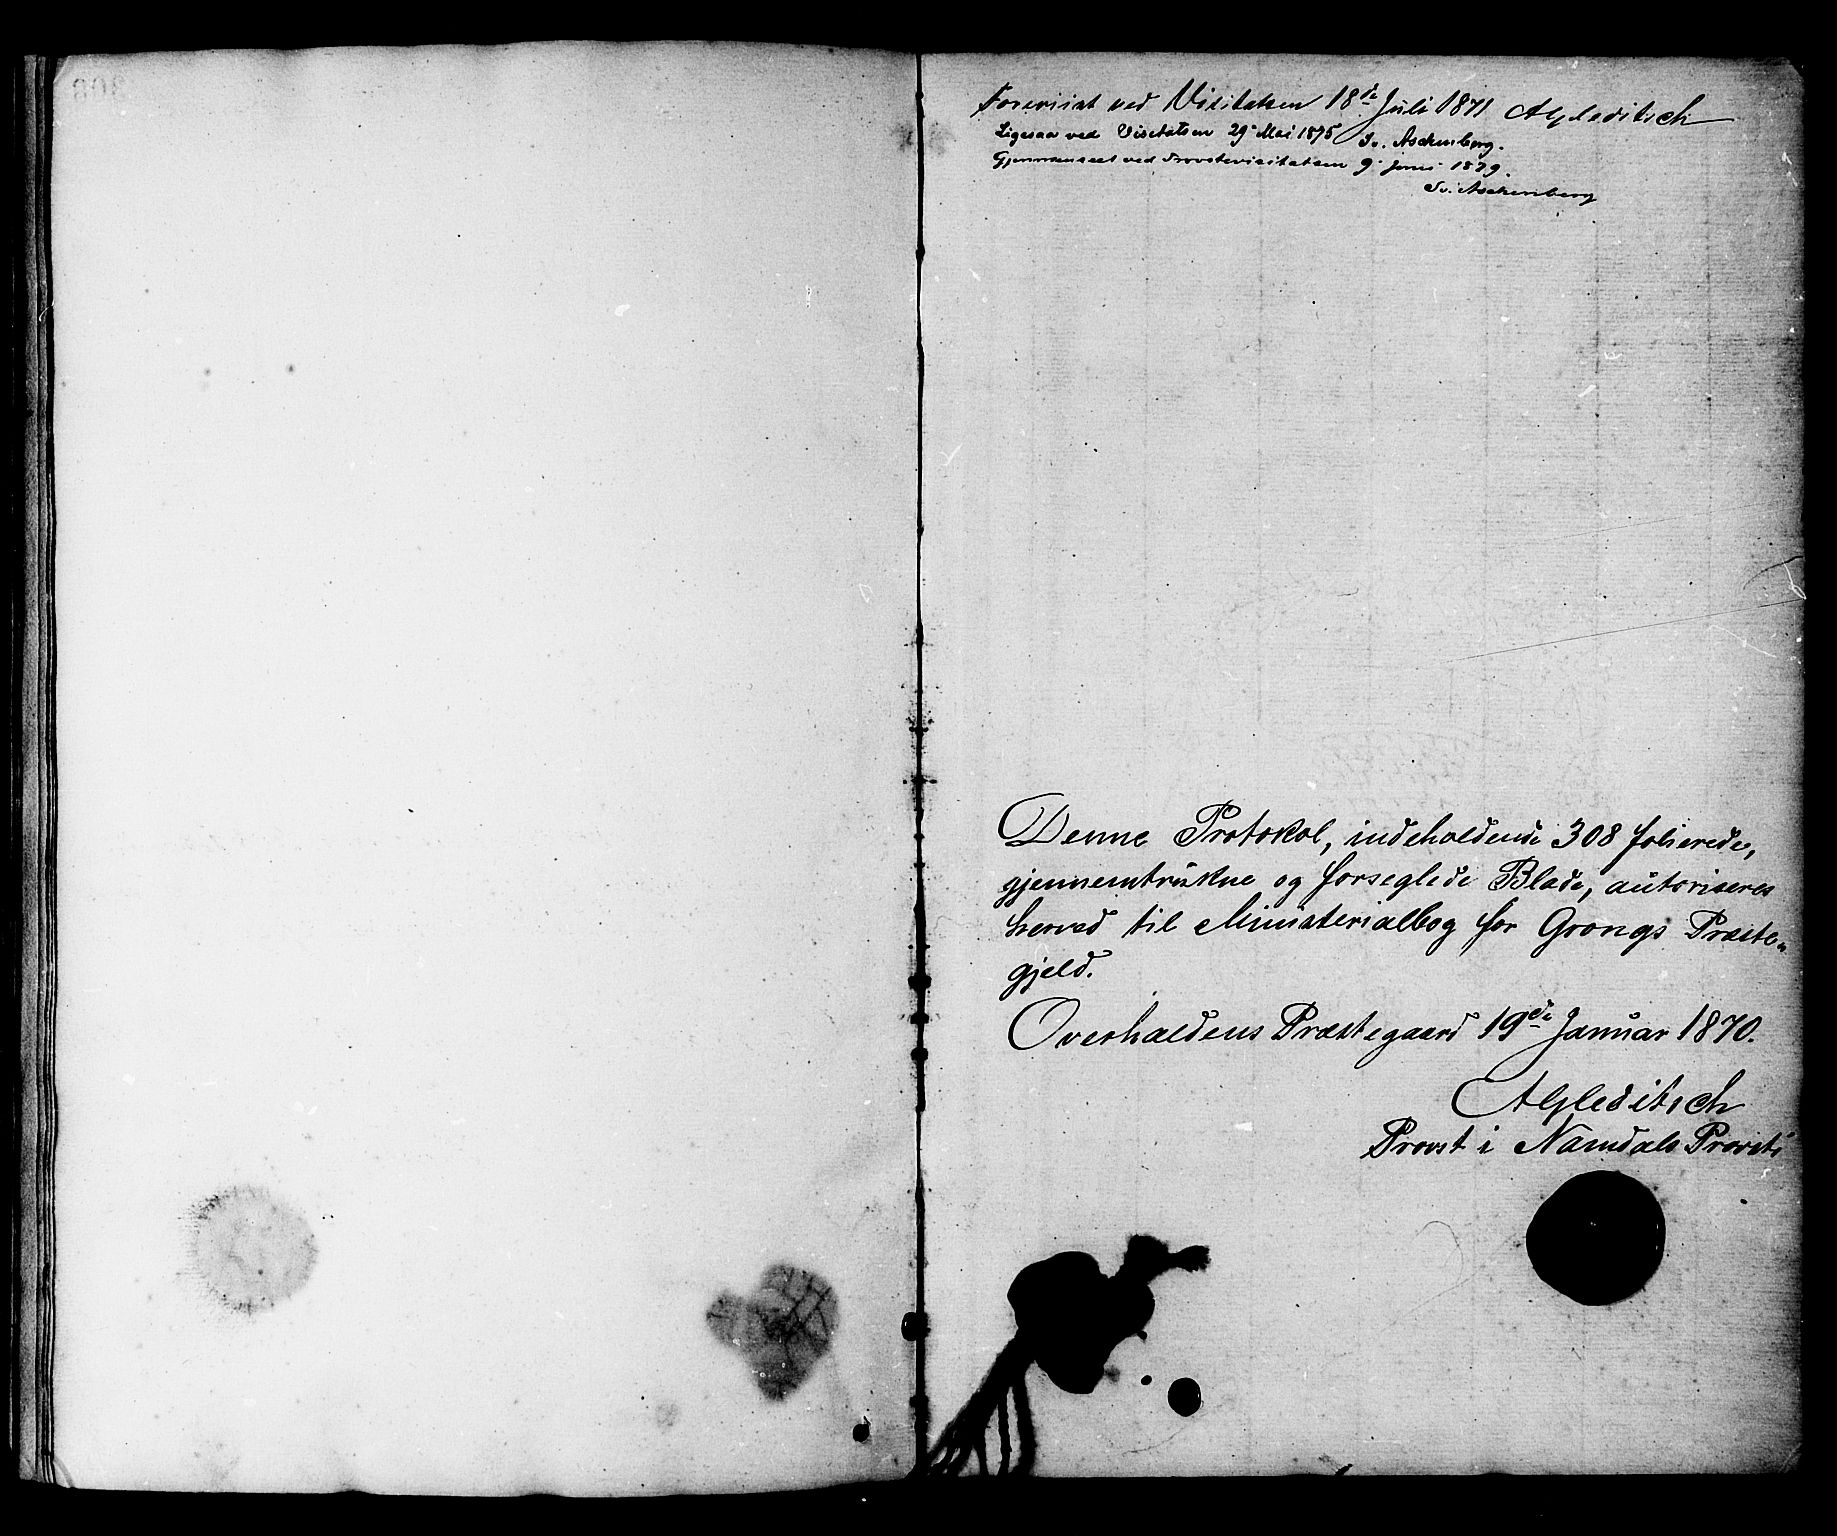 308
Foreviist ved Visitatsen 18de Juli 1871 AGleditsch
Ligesaa ved Visitatsen 29 Mai 1875 Sv. Aschenberg.
Gjennemseet ved Provstevisitatsen 9 Juni 1879.
Sv. Aschenberg
Denne Protokol, indeholdende 308 folierede,
gjennemtrukne og forseglede Blade, autoriseres
herved til Ministerialbog for Grongs Præste-
gjeld.
Overhaldens Præstegaard 19de Januar 1870.
AGleditsch
Provst i Namdals Provsti